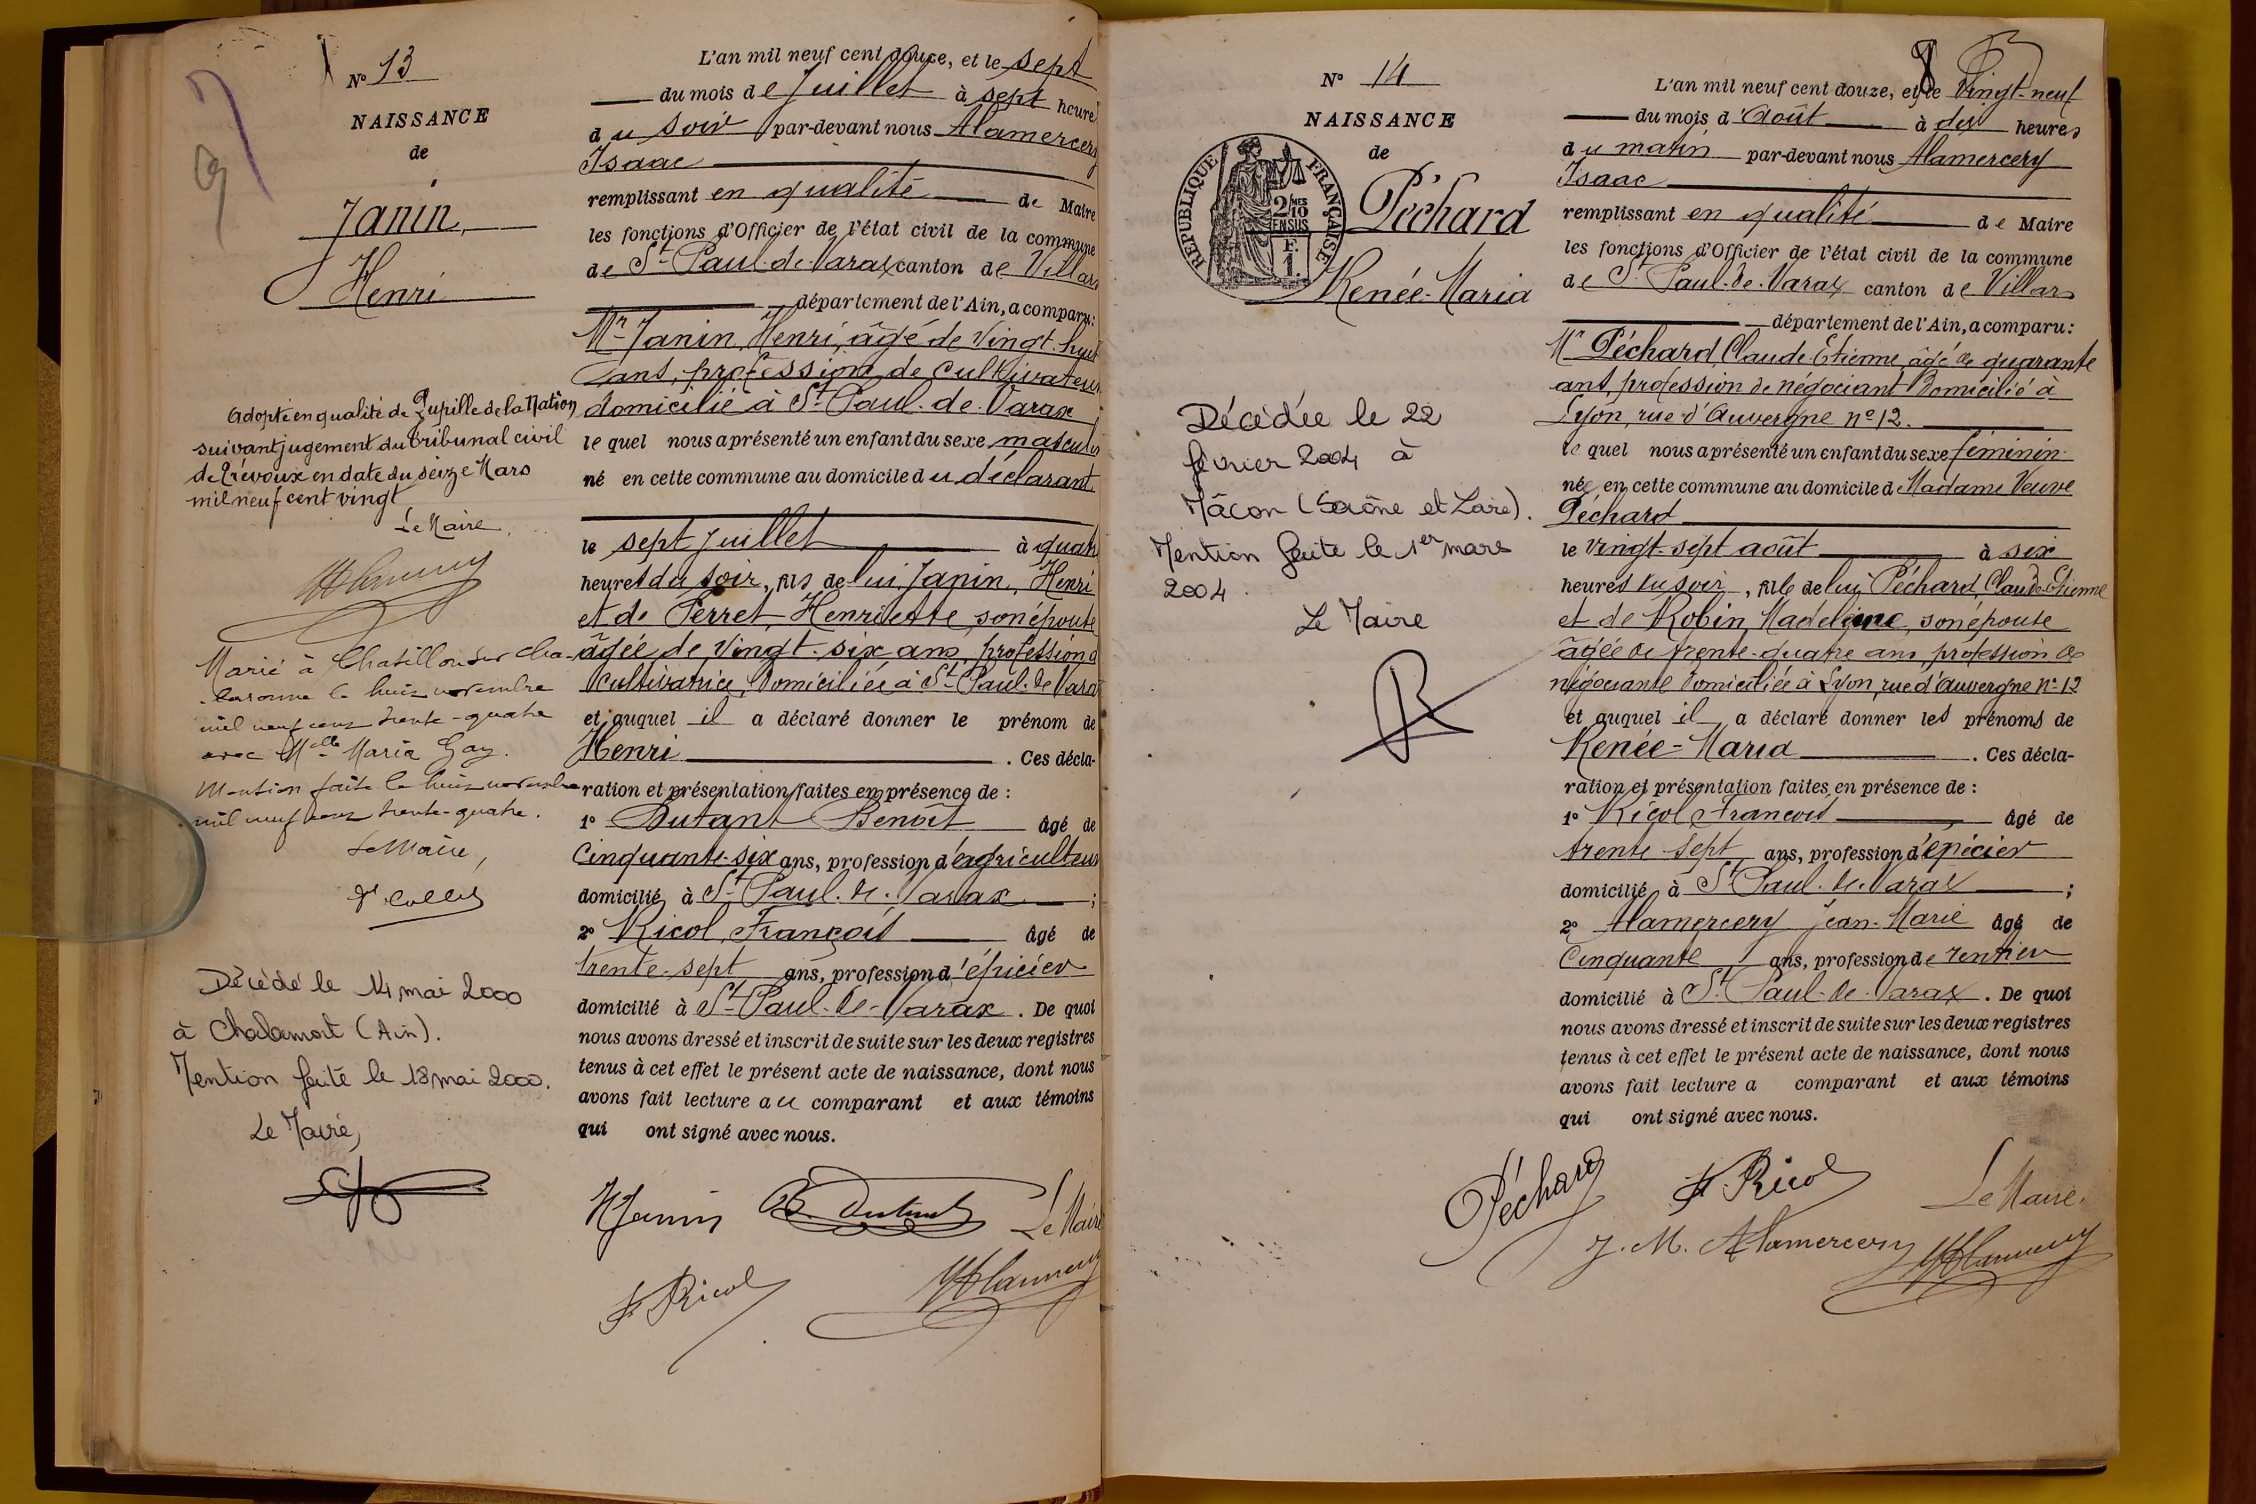 N° 13
NAISSANCE
de
Janin,
Henri
Adopté en qualité de Pupille de la Nation
suivant jugement du tribunal civil
de Trévoux en date du seize Mars
mil neuf cent vingt
Le Maire,
Marié à Chatillon sur Cha-
laronne le huit novembre
mil neuf cent trente-quatre
avec Melle Maria Gay.
Mention faite le huit novembre
mil neuf cent trente-quatre.
Le Maire,
Décédé le 14 mai 2000
à Chalamont (Ain).
Mention faite le 18 mai 2000.
Le Maire,
L'an mil neuf cent douze, et le sept
du mois de Juillet à sept heures
du soir par-devant nous Alamercery
Isaac
remplissant en qualité de Maire
les fonctions d'Officier de l'état civil de la commune
de St Paul-de-Varax canton de Villars
département de l'Ain, a comparu:
Mr Janin, Henri, âgé de Vingt-huit
ans, profession de cultivateur
domicilié à St-Paul-de-Varax
le quel nous a présenté un enfant du sexe masculin
né en cette commune au domicile du déclarant
le sept juillet à quatre
heures du soir, fils de lui Janin, Henri
et de Perret, Henriette, son épouse
âgée de Vingt-six ans, profession de
cultivatrice, domiciliée à St-Paul-de-Varax
et auquel il a déclaré donner le prénom de
Henri. Ces décla-
ration et présentation faites en présence de:
1° Dutant Benoît âgé de
Cinquante-six ans, profession d'agriculteur
domicilié à St-Paul-de-Varax;
2° Ricol, François âgé de
trente-sept ans, profession d'épicier
domicilié à St-Paul-de-Varax. De quoi
nous avons dressé et inscrit de suite sur les deux registres
tenus à cet effet le présent acte de naissance, dont nous
avons fait lecture au comparant et aux témoins
qui ont signé avec nous.
H Janin
Le Maire
F. Ricol
N° 14
NAISSANCE
de
RÉPUBLIQUE FRANÇAISE
2/10 EN SUS
F. 1.
Péchard
Renée-Maria
Décédée le 22
février 2004 à
Mâcon (Saône et Loire).
Mention faite le 1er mars
2004.
Le Maire
L'an mil neuf cent douze, et le Vingt-neuf
du mois d'Août à dix heures
du matin par-devant nous Alamercery
Isaac
remplissant en qualité de Maire
les fonctions d'Officier de l'état civil de la commune
de St Paul-de-Varax canton de Villars
département de l'Ain, a comparu:
Mr Péchard, Claude-Etienne, âgé de quarante
ans, profession de négociant domicilié à
Lyon, rue d'Auvergne n° 12.
le quel nous a présenté un enfant du sexe féminin
née en cette commune au domicile de Madame Veuve
Péchard
le Vingt-sept août à six
heures du soir, fille de lui Péchard, Claude-Etienne
et de Robin, Madeleine, son épouse
âgée de trente-quatre ans, profession de
négociante domiciliée à Lyon, rue d'Auvergne N° 12
et auquel il a déclaré donner les prénoms de
Renée-Maria. Ces décla-
ration et présentation faites en présence de:
1° Ricol, François âgé de
trente-sept ans, profession d'épicier
domicilié à St Paul-de-Varax;
2° Alamercery Jean-Marie âgé de
Cinquante ans, profession de rentier
domicilié à St-Paul-de-Varax. De quoi
nous avons dressé et inscrit de suite sur les deux registres
tenus à cet effet le présent acte de naissance, dont nous
avons fait lecture a comparant et aux témoins
qui ont signé avec nous.
Péchard
F. Ricol
Le Maire.
J. M. Alamercery